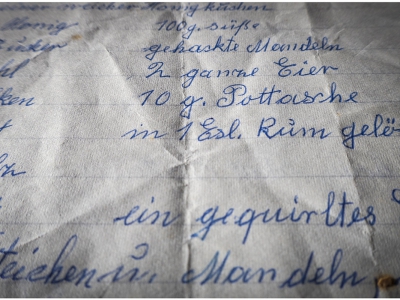 weicher Honigkuchen
Honig 100g. süße
gehackte Mandeln
2 ganze Eier
10 g. Pottasche
in 1 Esl. Rum gelö
ein gequirltes
teichen u. Mandeln,